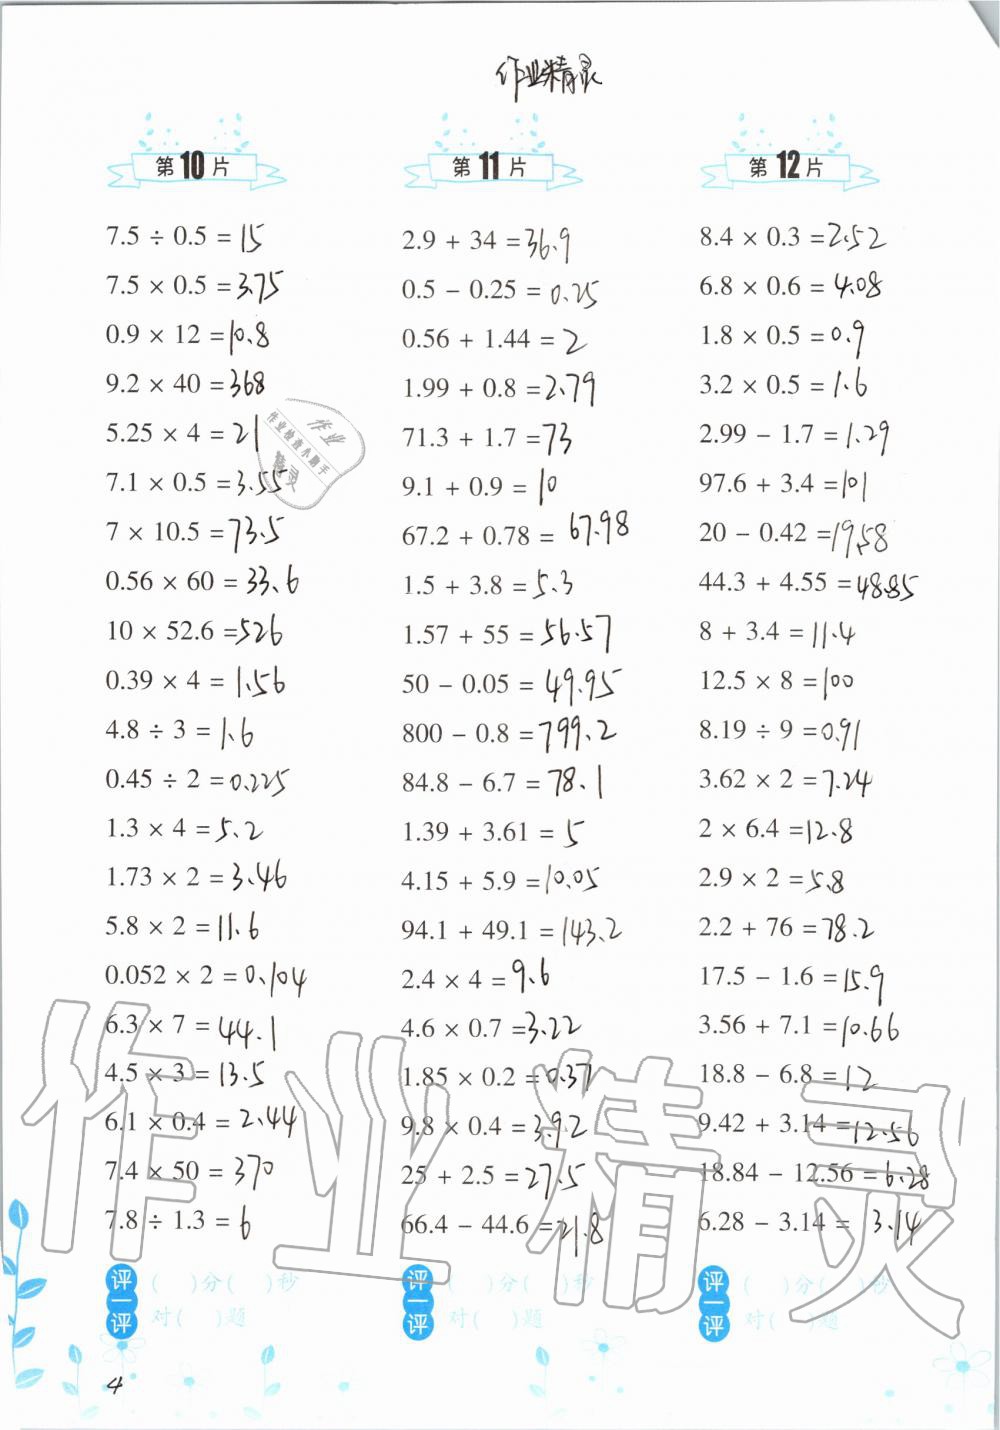 作业精灵
第10片
7.5 ÷ 0.5 = 15
7.5 × 0.5 = 3.75
0.9 × 12 = 10.8
9.2 × 40 = 368
5.25 × 4 = 21
7.1 × 0.5 = 3.55
7 × 10.5 = 73.5
0.56 × 60 = 33.6
10 × 52.6 = 526
0.39 × 4 = 1.56
4.8 ÷ 3 = 1.6
0.45 ÷ 2 = 0.225
1.3 × 4 = 5.2
1.73 × 2 = 3.46
5.8 × 2 = 11.6
0.052 × 2 = 0.104
6.3 × 7 = 44.1
4.5 × 3 = 13.5
6.1 × 0.4 = 2.44
7.4 × 50 = 370
7.8 ÷ 1.3 = 6
评一评
( )分( )秒
对( )题
第11片
2.9 + 34 = 36.9
0.5 − 0.25 = 0.25
0.56 + 1.44 = 2
1.99 + 0.8 = 2.79
71.3 + 1.7 = 73
9.1 + 0.9 = 10
67.2 + 0.78 = 67.98
1.5 + 3.8 = 5.3
1.57 + 55 = 56.57
50 − 0.05 = 49.95
800 − 0.8 = 799.2
84.8 − 6.7 = 78.1
1.39 + 3.61 = 5
4.15 + 5.9 = 10.05
94.1 + 49.1 = 143.2
2.4 × 4 = 9.6
4.6 × 0.7 = 3.22
1.85 × 0.2 = 0.37
9.8 × 0.4 = 3.92
25 + 2.5 = 27.5
66.4 − 44.6 = 21.8
评一评
( )分( )秒
对( )题
第12片
8.4 × 0.3 = 2.52
6.8 × 0.6 = 4.08
1.8 × 0.5 = 0.9
3.2 × 0.5 = 1.6
2.99 − 1.7 = 1.29
97.6 + 3.4 = 101
20 − 0.42 = 19.58
44.3 + 4.55 = 48.85
8 + 3.4 = 11.4
12.5 × 8 = 100
8.19 ÷ 9 = 0.91
3.62 × 2 = 7.24
2 × 6.4 = 12.8
2.9 × 2 = 5.8
2.2 + 76 = 78.2
17.5 − 1.6 = 15.9
3.56 + 7.1 = 10.66
18.8 − 6.8 = 12
9.42 + 3.14 = 12.56
18.84 − 12.56 = 6.28
6.28 − 3.14 = 3.14
评一评
( )分( )秒
对( )题
作业
作业检查小助手
精灵
作业精灵
4